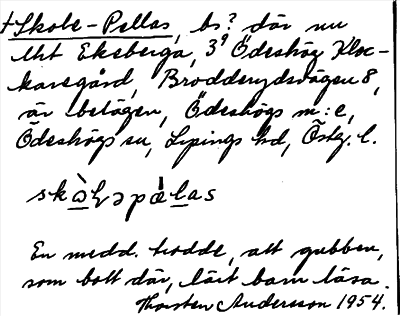 †Skole-Pellas, bs? där nu
lht Eksberga, 3⁹ Ödeshög Kloc-
karegård, Brodderydsvägen 8,
är belägen, Ödeshögs m:e,
Ödeshögs sn, Lysings hd, Östg. l.
En medd. trodde, att gubben,
som bott där, lärt barn läsa.
Thorsten Andersson 1954.